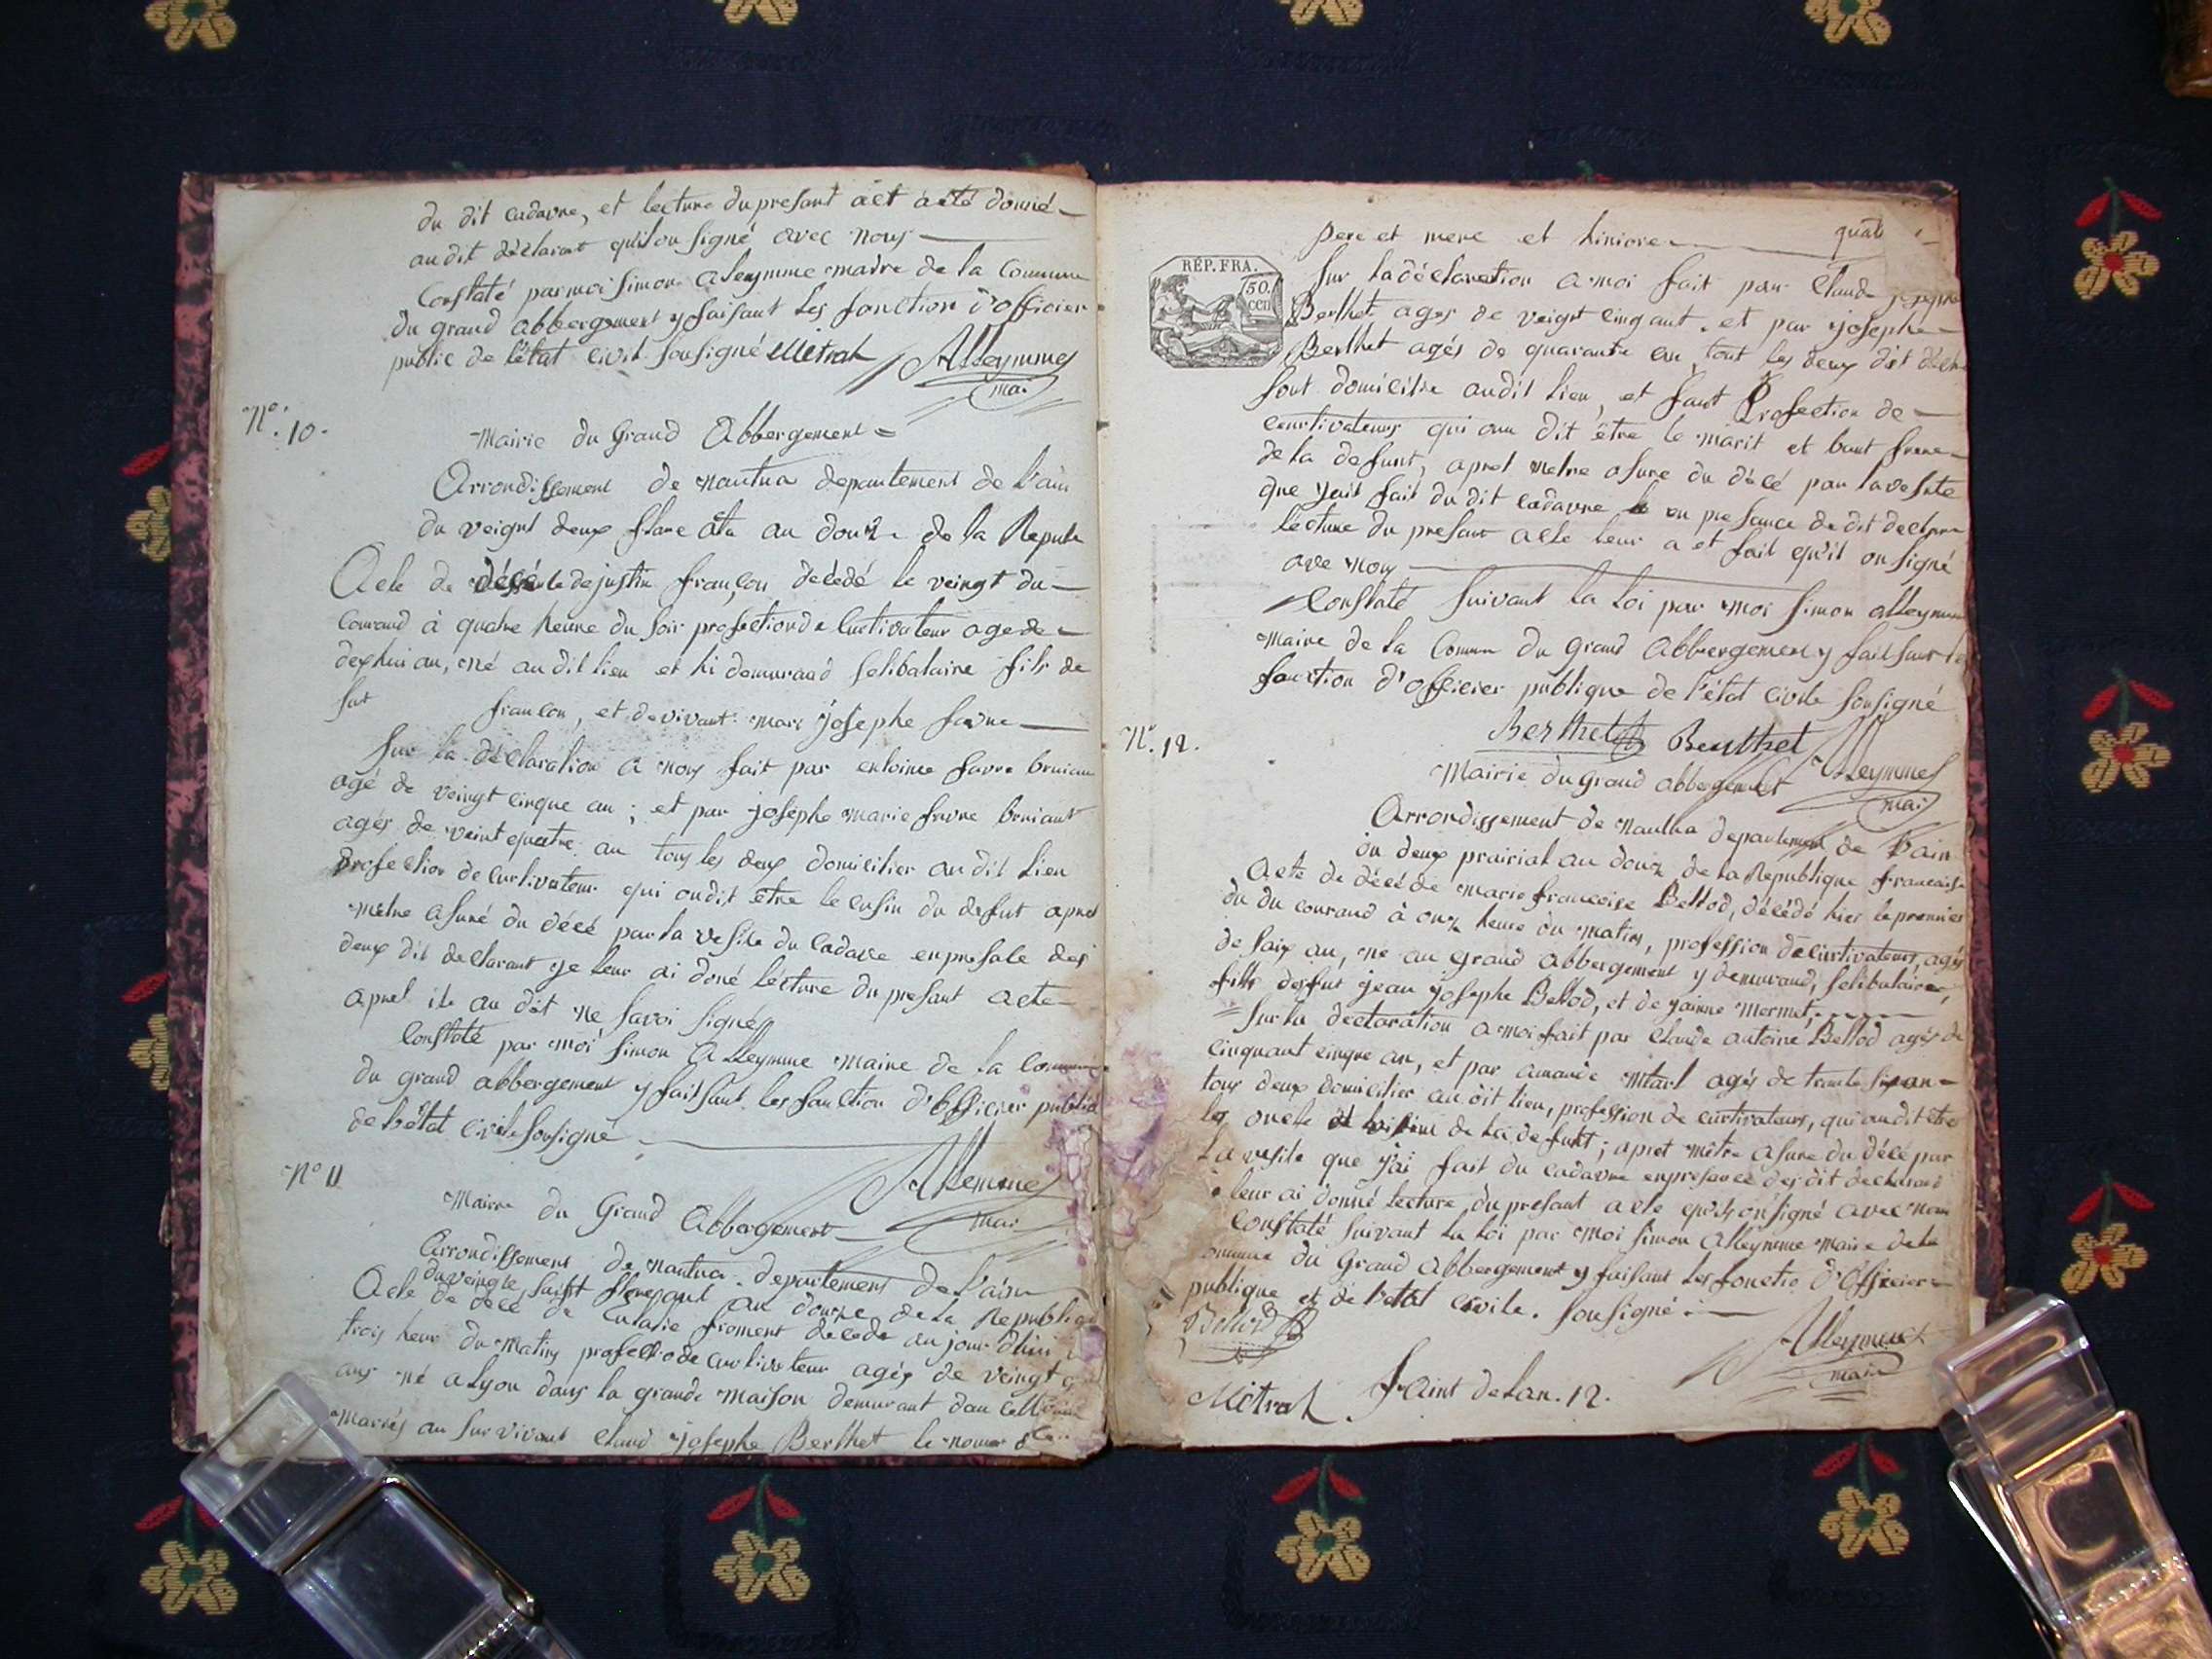 du dit cadavre, et lecture du presant act à été donné
au dit déclarant qu'il on signé avec nous
Constaté par moi Simon alleymme maire de la Commune
du grand abbergement y faisant les fonction d'officier
public de l'état civil sousigné Métral Alleymme
mai
N° 10.
Mairie du Grand Abbergement
Arrondissement de Nantua departement de l'ain
du veignt deux an douze de la Repub
Acte de décé de justin françon decedé le veingt du
Courand à quatre heure du soir profection de Curtivateur age de
dexhui an, né au dit lieu et hi demuraad selibataire fils de
fut françon, et de vivant marie josephe favre
Sur la déclaration a nous fait par entoinee favre bruiant
agé de veingt cinque an ; et par josephe marie favre bruiant
agés de veint quatre an tous les deux domicilier au dit lieu
profection de Curtivateur qui ondit être le cusin du defut apret
mêtre asuré du décé par la vesite du Cadavre en presale des
deux dit declarant je leur ai doné lécture du presant acte
apret ile au dit ne savoi signés
Constaté par moi Simon Alleymme Maire de la Commune
du grand abbergement y faissant les fonction d'officier public
de l'état civile sousigné
Allemme
mai
N° 11
Mairie du Grand Abbergement
Arrondissement de Nantua departement de l'ain
du veingt an douze de la Republiq
Acte de décé de Eulalie froment decede au jour d'hui
trois heur du matins profectio de Curtivateur agés de veingt
ans né a Lyon dans la grande maison demurant dan
mariés au survivant Claud josephe Berthet le nomer
pere et mere et hiniore
quat
RÉP. FRA.
50. cen
Sur la déclaration a moi fait par Claude josephe
Berthet ages de veignt cinq ant et par josephe
Berthet agés de quarante an, tout les deux dit
sont domicilie audit lieu, et fant Profection de
curtivateurs qui onn dit être le marit et baut frere
de la defunt, apret metre asure du décé par la vesite
que j'ait fait du dit cadavre en presance de dit declara
lecture du presant acte leur a et fait qu'il on signé
ave nous
Constaté suivant la loi par moi Simon alleymme
maire de la Comun du grand Abbergement y faissant les
fonction d'officier publique de l'état civile sousigné
Berthet Berthet Alleymme
mai
N° 12.
Mairie du Grand abbergement
Arrondissement de Nantua departement de l'ain
du deux prairial an douz de la Republique francaise
Acte de décé de Marie françoise Bellod, décédé hier le premier
du du courand à onz heure du matins, profession de curtivateurs, agés
de saix an, ne au grand abbergement y demurand, selibataire,
fille desfut jean josephe Bellod, et de jainne Mermet,
Sur la declaration a moi fait par Claude antoine Bellod agés de
cinquant cinque an, et par amande Métral agés de trante six an
tous deux domicilier au dit lieu, profession de curtivateurs, qui on dit être
les oncle et voisin de la defunt ; apret mêtre asure du décé par
la vesite que j'ai fait du cadavre en presance des dit declarand
je leur ai donné lecture du presant acte qu'ils on signé avec nous
Constaté suivant la loi par moi Simon Alleymme Maire de la
Commune du Grand Abbergement y faisant les fonctio d'officier
publique et de l'état civile. sousigné
Bellod Alleymme
maire
Métral
f aint de lan. 12.